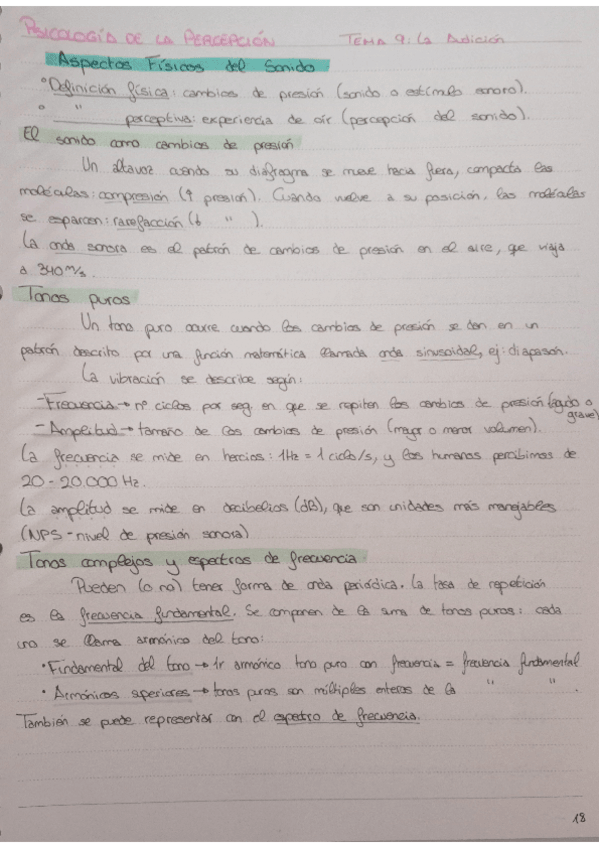 PSICOLOGÍA DE LA PERCEPCIÓN TEMA 9: La Audición
Aspectos Físicos del Sonido
• Definición física: cambios de presión (sonido o estímulo sonoro).
• " perceptiva: experiencia de oír (percepción del sonido).
El sonido como cambios de presión
Un altavoz cuando su diafragma se mueve hacia fuera, compacta las
moléculas: compresión (↑ presión). Cuando vuelve a su posición, las moléculas
se esparcen: rarefacción (↓ " ).
La onda sonora es el patrón de cambios de presión en el aire, que viaja
a 340 m/s.
Tonos puros
Un tono puro ocurre cuando los cambios de presión se dan en un
patrón descrito por una función matemática llamada onda sinusoidal, ej: diapasón.
La vibración se describe según:
- Frecuencia → nº ciclos por seg. en que se repiten los cambios de presión (agudo o grave)
- Amplitud → tamaño de los cambios de presión (mayor o menor volumen).
La frecuencia se mide en hercios: 1Hz = 1 ciclo/s, y los humanos percibimos de
20 - 20.000 Hz.
La amplitud se mide en decibelios (dB), que son unidades más manejables
(NPS - nivel de presión sonora)
Tonos complejos y espectros de frecuencia
Pueden (o no) tener forma de onda periódica. La tasa de repetición
es la frecuencia fundamental. Se componen de la suma de tonos puros: cada
uno se llama armónico del tono:
• Fundamental del tono → 1r armónico tono puro con frecuencia = frecuencia fundamental
• Armónicos superiores → tonos puros son múltiples enteros de la " " .
También se puede representar con el espectro de frecuencia.
18